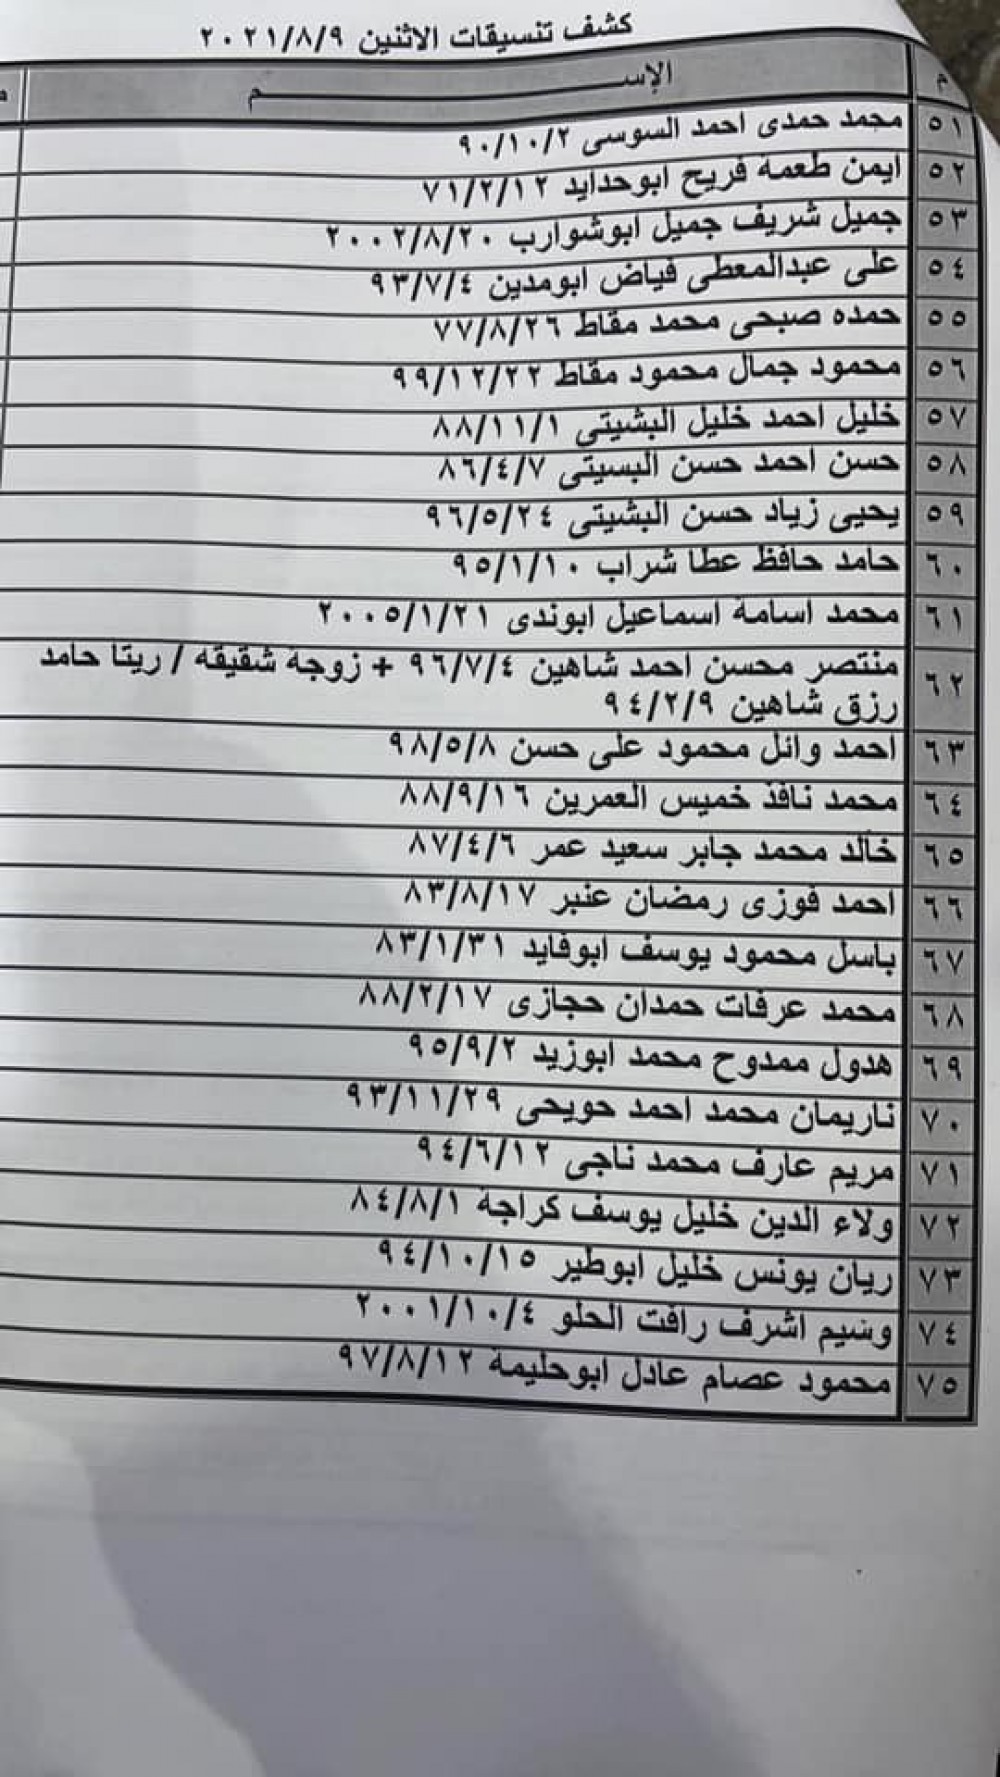 كشف تنسيقات الاثنين ٢٠٢١/٨/٩
م الإســـــم م
٥١ محمد حمدى احمد السوسى ٩٠/١٠/٢
٥٢ ايمن طعمه فريح ابوحدايد ٧١/٢/١٢
٥٣ جميل شريف جميل ابوشوارب ٢٠٠٢/٨/٢٠
٥٤ على عبدالمعطى فياض ابومدين ٩٣/٧/٤
٥٥ حمده صبحى محمد مقاط ٧٧/٨/٢٦
٥٦ محمود جمال محمود مقاط ٩٩/١٢/٢٢
٥٧ خليل احمد خليل البشيتي ٨٨/١١/١
٥٨ حسن احمد حسن البسيتى ٨٦/٤/٧
٥٩ يحيى زياد حسن البشيتى ٩٦/٥/٢٤
٦٠ حامد حافظ عطا شراب ٩٥/١/١٠
٦١ محمد اسامة اسماعيل ابوندى ٢٠٠٥/١/٢١
٦٢ منتصر محسن احمد شاهين ٩٦/٧/٤ + زوجة شقيقه / ريتا حامد
رزق شاهين ٩٤/٢/٩
٦٣ احمد وائل محمود على حسن ٩٨/٥/٨
٦٤ محمد نافذ خميس العمرين ٨٨/٩/١٦
٦٥ خالد محمد جابر سعيد عمر ٨٧/٤/٦
٦٦ احمد فوزى رمضان عنبر ٨٣/٨/١٧
٦٧ باسل محمود يوسف ابوفايد ٨٣/١/٣١
٦٨ محمد عرفات حمدان حجازى ٨٨/٢/١٧
٦٩ هدول ممدوح محمد ابوزيد ٩٥/٩/٢
٧٠ ناريمان محمد احمد حويحى ٩٣/١١/٢٩
٧١ مريم عارف محمد ناجى ٩٤/٦/١٢
٧٢ ولاء الدين خليل يوسف كراجة ٨٤/٨/١
٧٣ ريان يونس خليل ابوطير ٩٤/١٠/١٥
٧٤ وسيم اشرف رافت الحلو ٢٠٠١/١٠/٤
٧٥ محمود عصام عادل ابوحليمة ٩٧/٨/١٢